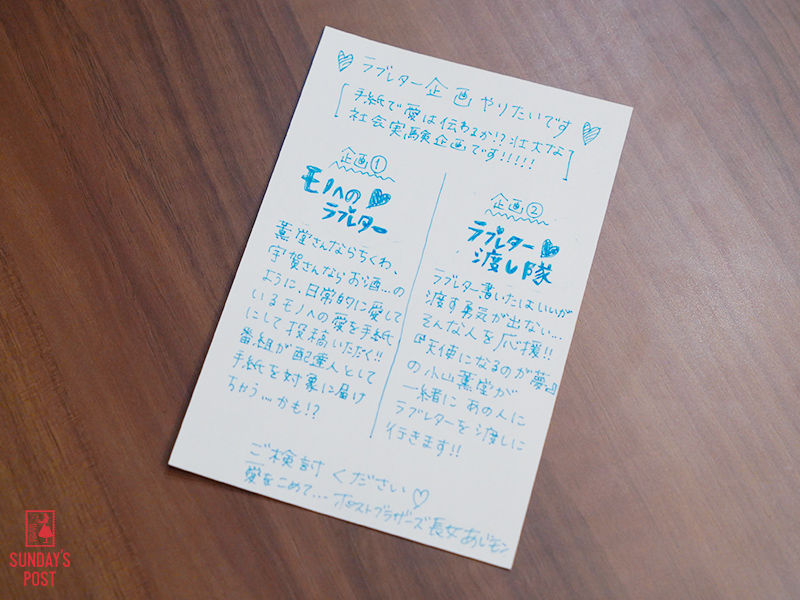 ラブレター企画やりたいです
[手紙で愛は伝わるか!?壮大な
社会実験企画です!!!!!]
企画①
モノへの
ラブレター
薫堂さんならちくわ、
宇賀さんならお酒…の
ように、日常的に愛して
いるモノへの愛を手紙
にして投稿いただく!!
番組が配達人として
手紙を対象に届け
ちゃう…かも!?
企画②
ラブレター
渡し隊
ラブレター書いたはいいが
渡す勇気が出ない…
そんな人を応援!!
『天使になるのが夢』
の小山薫堂が
一緒にあの人に
ラブレターを渡しに
行きます!!
ご検討ください
愛をこめて…ポストブラザーズ長女あじモン
SUNDAY'S
POST